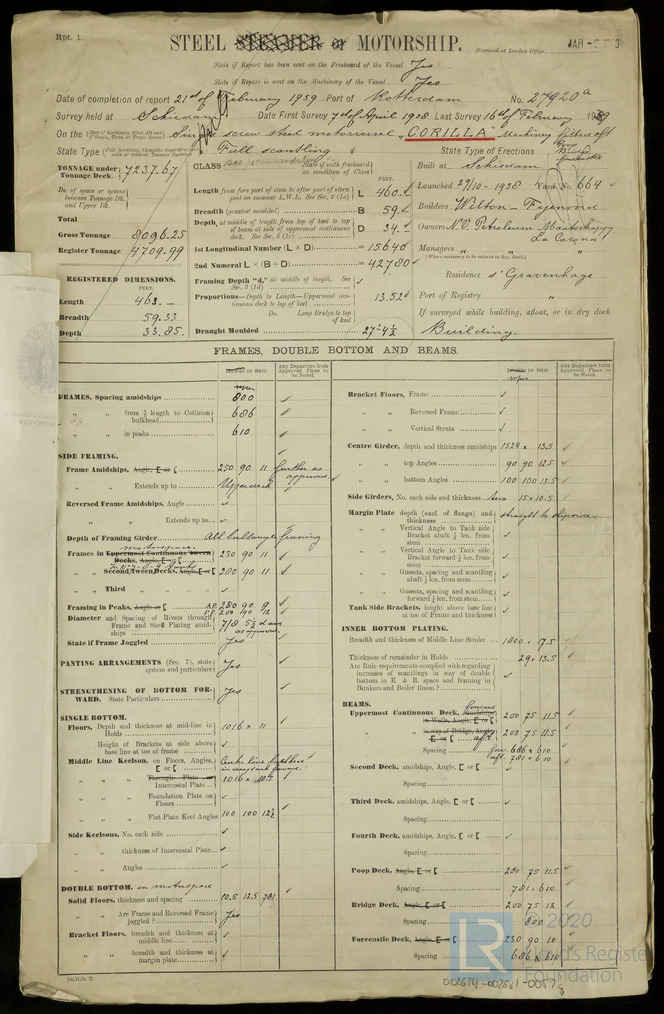 Rpt. 1.
STEEL STEAMER or MOTORSHIP.
Received at London Office
State if Report has been sent on the Freeboard of the Vessel Yes
State if Report is sent on the Machinery of the Vessel Yes
Date of completion of report 21st of February 1939 Port of Rotterdam No. 27920a
Survey held at Schiedam Date First Survey 7th of April 1938 Last Survey 16th of February 1939
On the Single screw steel motorvessel "CORILLA" Machinery fitted aft
State Type Full scantling
State Type of Erections Poop Bridge forecastle
TONNAGE under Tonnage Deck 7237.67
Do. of space or spaces between Tonnage Dk. and Upper Dk.
Total
Gross Tonnage 8096.25
Register Tonnage 4709.99
REGISTERED DIMENSIONS.
FEET.
Length 463.-
Breadth 59.33
Depth 33.85
CLASS
State if with freeboard as condition of Class
FEET.
Length from fore part of stem to after part of stern post on summer L.W.L. See Sec. 3 (1a) L 460.
Breadth (greatest moulded) B 59.
Depth, at middle of length from top of keel to top of beam at side of uppermost continuous deck. See Sec. 3 (1c) D 34.
1st Longitudinal Number (L × D) = 15640
2nd Numeral L × (B + D) = 42780
Framing Depth "d," at middle of length. See Sec. 3 (1d)
Proportions—Depth to Length—Uppermost continuous deck to top of keel 13.52
Do. Long Bridge to top of keel
Draught Moulded 27'4½
Built at Schiedam
Launched 29/10-1938 Yard No. 664
Builders Wilton-Fijenoord
Owners N.V. Petroleum Maatschappy La Corona
Managers " "
(Where necessary to be entered in Reg. Book.)
Residence s'Gravenhage
Port of Registry "
If surveyed while building, afloat, or in dry dock
Building.
FRAMES, DOUBLE BOTTOM AND BEAMS.
Any Departure from Approved Plans to be Noted.
FRAMES, Spacing amidships 800
" " from ¾ length to Collision bulkhead 686
" " in peaks 610
SIDE FRAMING.
Frame Amidships, Angle, E or [ 250 90 11 further as approved
" " Extends up to Upperdeck
Reversed Frame Amidships, Angle
" " Extends up to
Depth of Framing Girder All bulbangle framing
Frames in Uppermost Continuous Tween Decks, Angle, E or [ motorspace 230 90 11
" " Second Tween Decks, Angle, E or [ 280 90 11
" " Third " " " "
Framing in Peaks, Angle or [ A.P. 230 90 9 F.P. 200 90 12
Diameter and Spacing of Rivets through Frame and Shell Plating amidships 7/8 as approved
State if Frame Joggled Yes
PANTING ARRANGEMENTS (Sec. 7), state system and particulars Yes
STRENGTHENING OF BOTTOM FORWARD. State Particulars Yes
SINGLE BOTTOM.
Floors, Depth and thickness at mid-line in Holds 1016 × 11
Height of Brackets at side above base line at toe of frame
Middle Line Keelson, on Floors, Angles, E or [ Centre line bulkhead
" " " Through Plate or Intercostal Plate 1016 × 10.5
" " " Foundation Plate on Floors
" " " Flat Plate Keel Angles 100 100 12½
Side Keelsons, No. each side
" " thickness of Intercostal Plate
" " Angles
DOUBLE BOTTOM. in motorspace
Solid Floors, thickness and spacing 10.5 12.5 781
" " Are Frame and Reversed Frame joggled? Yes
Bracket Floors, breadth and thickness at middle line
" " breadth and thickness at margin plate
Any Departure from Approved Plans to be Noted.
Bracket Floors, Frame
" " Reversed Frame
" " Vertical Struts
Centre Girder, depth and thickness amidships 1524 × 13.5
" " top Angles 90 90 12.5
" " bottom Angles 100 100 13.5
Side Girders, No. each side and thickness two 15 + 10.5
Margin Plate depth (excl. of flange) and thickness straight to shipside
" " Vertical Angle to Tank side Bracket abaft ¼ len. from stem
" " Vertical Angle to Tank side Bracket forward ¼ len. from stem
" " Gussets, spacing and scantling abaft ¼ len. from stem
" " Gussets, spacing and scantling forward ¼ len. from stem
Tank Side Brackets, height above base line at toe of Frame and thickness
INNER BOTTOM PLATING.
Breadth and thickness of Middle Line Strake 1800 × 17.5
Thickness of remainder in Holds 29 + 13.5
Are Rule requirements complied with regarding increases of scantlings in way of double bottom in E. & B. space and framing in Bunkers and Boiler Room?
BEAMS.
Uppermost Continuous Deck, forward 200 75 11.5
in Wells, Angle, E or [
" " in way of Bridge, Angle, E or [ aft 200 75 11.5
Spacing for. 686 + 610 aft. 781 + 610
Second Deck, amidships, Angle, E or [
Spacing
Third Deck, amidships, Angle, E or [
Spacing
Fourth Deck, amidships, Angle, E or [
Spacing
Poop Deck, Angle, E or [ 200 75 11.5
Spacing 781 + 610
Bridge Deck, Angle, E or [ 200 75 12
Spacing 800
Forecastle Deck, Angle, E or [ 230 90 10
Spacing 686 & 610
LR © 2020
Lloyd's Register
Foundation
002674-002681-0057